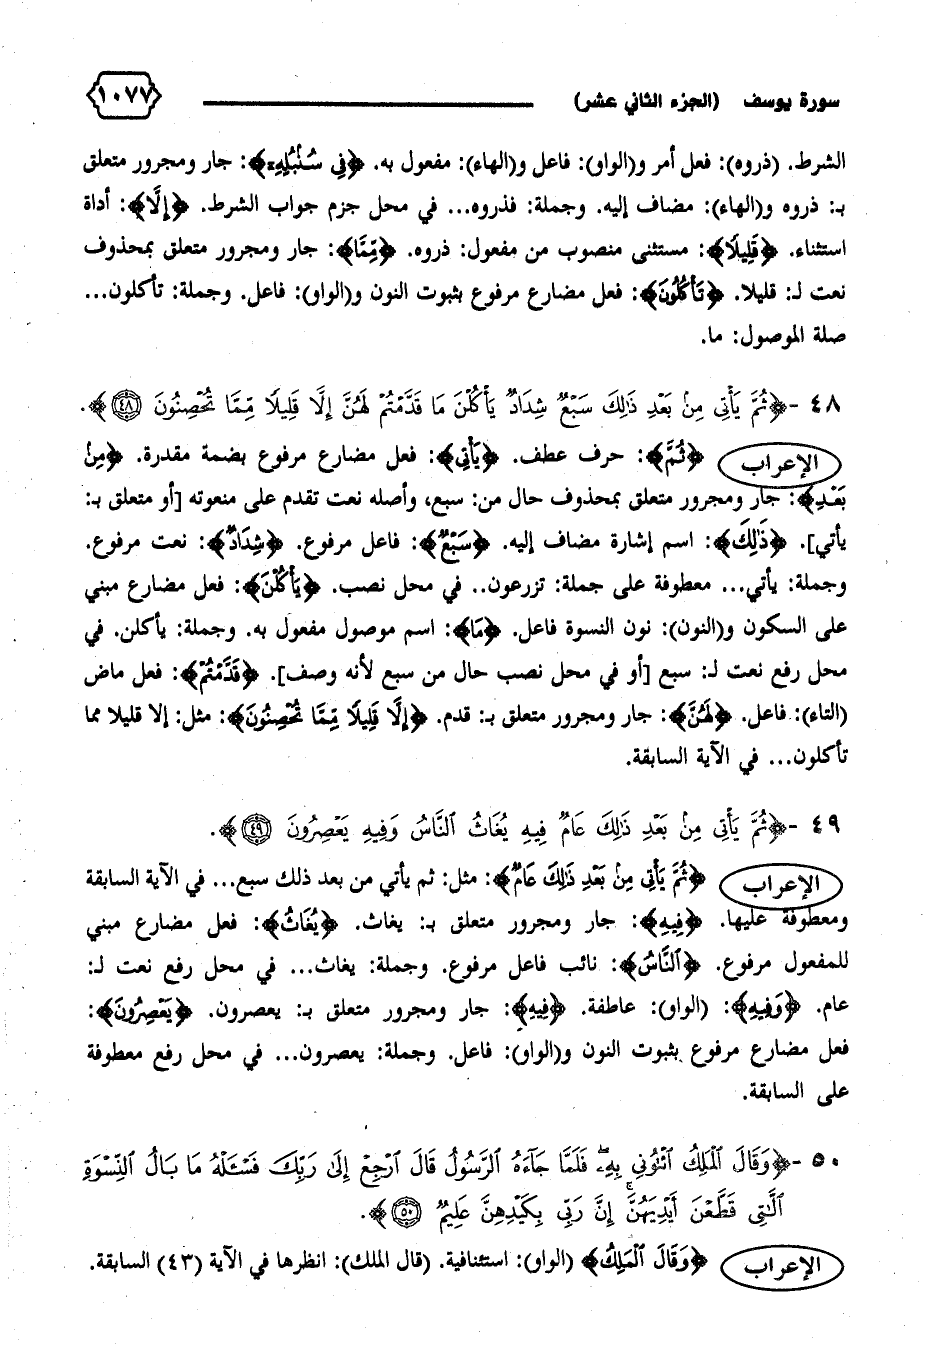 سورة يوسف (الجزء الثاني عشر) ١٠٧٧
الشرط. (ذروه): فعل أمر و(الواو): فاعل و(الهاء): مفعول به. ﴿فِي سُنۢبُلِهِۦٓ﴾: جار ومجرور متعلق
بـ: ذروه و(الهاء): مضاف إليه. وجملة: فذروه... في محل جزم جواب الشرط. ﴿إِلَّا﴾: أداة
استثناء. ﴿قَلِيلًا﴾: مستثنى منصوب من مفعول: ذروه. ﴿مِّمَّا﴾: جار ومجرور متعلق بمحذوف
نعت لـ: قليلا. ﴿تَأْكُلُونَ﴾: فعل مضارع مرفوع بثبوت النون و(الواو): فاعل. وجملة: تأكلون...
صلة الموصول: ما.
٤٨ -﴿ثُمَّ يَأْتِي مِنۢ بَعْدِ ذَٰلِكَ سَبْعٌ شِدَادٌ يَأْكُلْنَ مَا قَدَّمْتُمْ لَهُنَّ إِلَّا قَلِيلًا مِّمَّا تُحْصِنُونَ ٤٨﴾.
الإعراب ﴿ثُمَّ﴾: حرف عطف. ﴿يَأْتِي﴾: فعل مضارع مرفوع بضمة مقدرة. ﴿مِنۢ
بَعْدِ﴾: جار ومجرور متعلق بمحذوف حال من: سبع، وأصله نعت تقدم على منعوته [أو متعلق بـ:
يأتي]. ﴿ذَٰلِكَ﴾: اسم إشارة مضاف إليه. ﴿سَبْعٌ﴾: فاعل مرفوع. ﴿شِدَادٌ﴾: نعت مرفوع.
وجملة: يأتي... معطوفة على جملة: تزرعون.. في محل نصب. ﴿يَأْكُلْنَ﴾: فعل مضارع مبني
على السكون و(النون): نون النسوة فاعل. ﴿مَا﴾: اسم موصول مفعول به. وجملة: يأكلن. في
محل رفع نعت لـ: سبع [أو في محل نصب حال من سبع لأنه وصف]. ﴿قَدَّمْتُمْ﴾: فعل ماض
(التاء): فاعل. ﴿لَهُنَّ﴾: جار ومجرور متعلق بـ: قدم. ﴿إِلَّا قَلِيلًا مِّمَّا تُحْصِنُونَ﴾: مثل: إلا قليلا مما
تأكلون... في الآية السابقة.
٤٩ -﴿ثُمَّ يَأْتِي مِنۢ بَعْدِ ذَٰلِكَ عَامٌ فِيهِ يُغَاثُ ٱلنَّاسُ وَفِيهِ يَعْصِرُونَ ٤٩﴾.
الإعراب ﴿ثُمَّ يَأْتِي مِنۢ بَعْدِ ذَٰلِكَ عَامٌ﴾: مثل: ثم يأتي من بعد ذلك سبع... في الآية السابقة
ومعطوفة عليها. ﴿فِيهِ﴾: جار ومجرور متعلق بـ: يغاث. ﴿يُغَاثُ﴾: فعل مضارع مبني
للمفعول مرفوع. ﴿ٱلنَّاسُ﴾: نائب فاعل مرفوع. وجملة: يغاث... في محل رفع نعت لـ:
عام. ﴿وَفِيهِ﴾: (الواو): عاطفة. ﴿فِيهِ﴾: جار ومجرور متعلق بـ: يعصرون. ﴿يَعْصِرُونَ﴾:
فعل مضارع مرفوع بثبوت النون و(الواو): فاعل. وجملة: يعصرون... في محل رفع معطوفة
على السابقة.
٥٠ -﴿وَقَالَ ٱلْمَلِكُ ٱئْتُونِي بِهِۦ ۖ فَلَمَّا جَآءَهُ ٱلرَّسُولُ قَالَ ٱرْجِعْ إِلَىٰ رَبِّكَ فَسْـَٔلْهُ مَا بَالُ ٱلنِّسْوَةِ
ٱلَّٰتِي قَطَّعْنَ أَيْدِيَهُنَّ ۚ إِنَّ رَبِّي بِكَيْدِهِنَّ عَلِيمٌ ٥٠﴾.
الإعراب ﴿وَقَالَ ٱلْمَلِكُ﴾ (الواو): استئنافية. (قال الملك): انظرها في الآية (٤٣) السابقة.